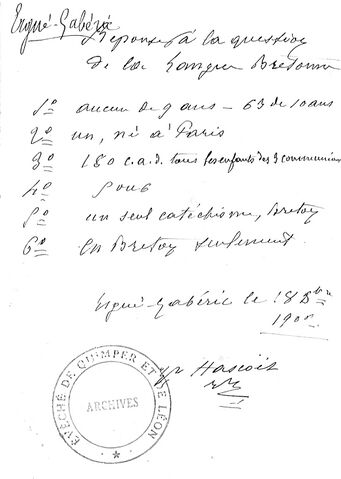 Ergué-Gabéric
Réponses à la question
de la Langue Bretonne
1º aucun de 9 ans – 63 de 10 ans
2º un, né à Paris
3º 180 c.a.d. tous les enfants des 3 communions
4º Tous
5º un seul catéchisme, Breton
6º en Breton seulement
Ergué-Gabéric le 18
190
Hascoët
ÉVÊCHÉ DE QUIMPER ET DE LÉON
ARCHIVES